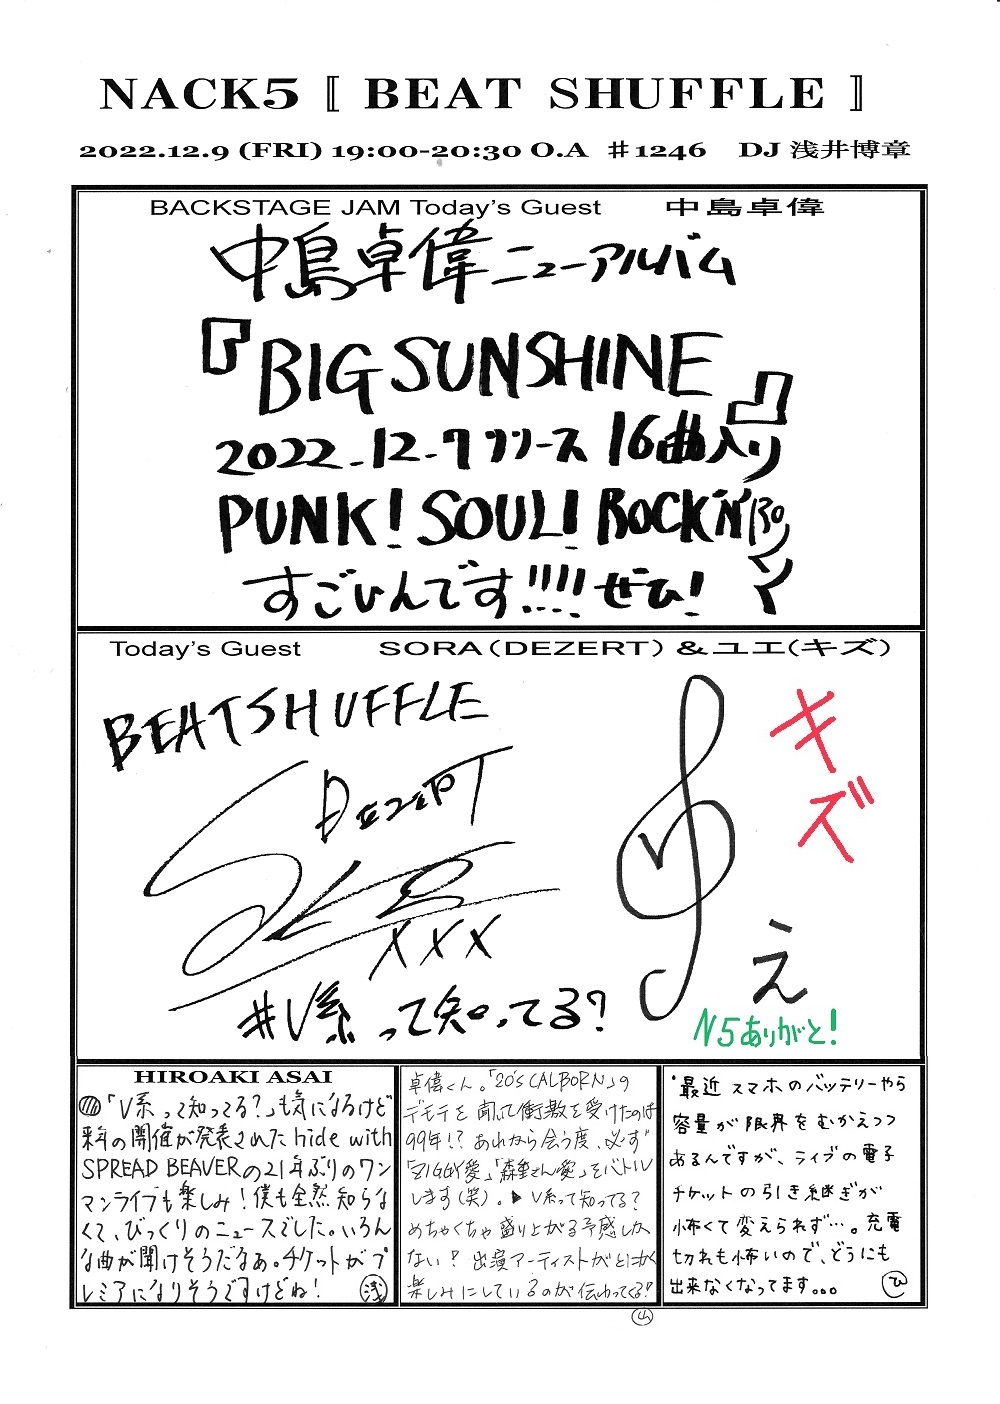 NACK5 〚 BEAT SHUFFLE 〛
2022.12.9 (FRI) 19:00-20:30 O.A ♯1246 DJ 浅井博章
BACKSTAGE JAM Today's Guest 中島卓偉
中島卓偉ニューアルバム
『BIG SUNSHINE』
2022.12.7リリース 16曲入り
PUNK! SOUL! ROCK'N'ROリンィ
すごいんです!!!! ぜひ!
Today's Guest SORA(DEZERT) & ユエ(キズ)
BEATSHUFFLE
DEZERT
XXX
#V系って知ってる?
キズ
え
N5ありがと!
HIROAKI ASAI
「V系って知ってる?」も気になるけど
来年の開催が発表されたhide with
SPREAD BEAVERの21年ぶりのワン
マンライブも楽しみ!僕も全然知らな
くて、びっくりのニュースでした。いろん
な曲が聞けそうだなぁ。チケットがプ
レミアになりそうですけどね! 浅
卓偉くん。「20's CALBORN」の
デモテを聞いて衝撃を受けたのは
99年!?あれから会う度、必ず
「ZIGGY愛」「森重さん愛」をバトル
します(笑)。▶V系って知ってる?
めちゃくちゃ盛り上がる予感しか
ない!?出演アーティストがとにかく
楽しみにしているのが伝わってくる!!
山
最近スマホのバッテリーやら
容量が限界をむかえつつ
あるんですが、ライブの電子
チケットの引き継ぎが
怖くて変えられず…。充電
切れも怖いので、どうにも
出来なくなってます。。。 ひ